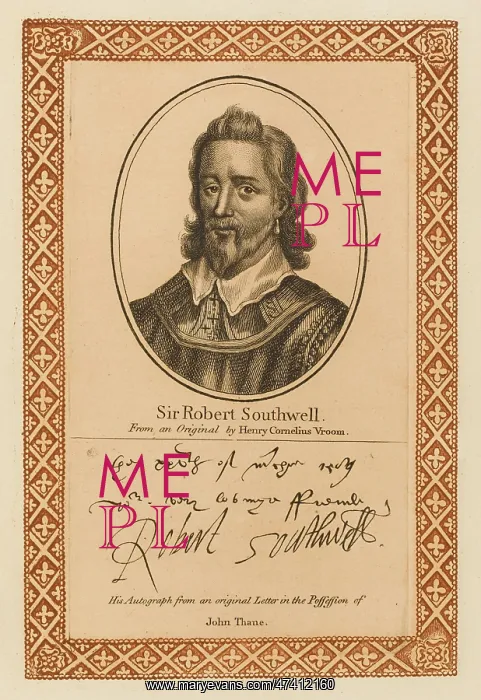 ME
PL
Sir Robert Southwell.
From an Original by Henry Cornelius Vroom.
ME
PL
Robert Southwell
His Autograph from an original Letter in the Possession of
John Thane.
www.maryevans.com/47412160